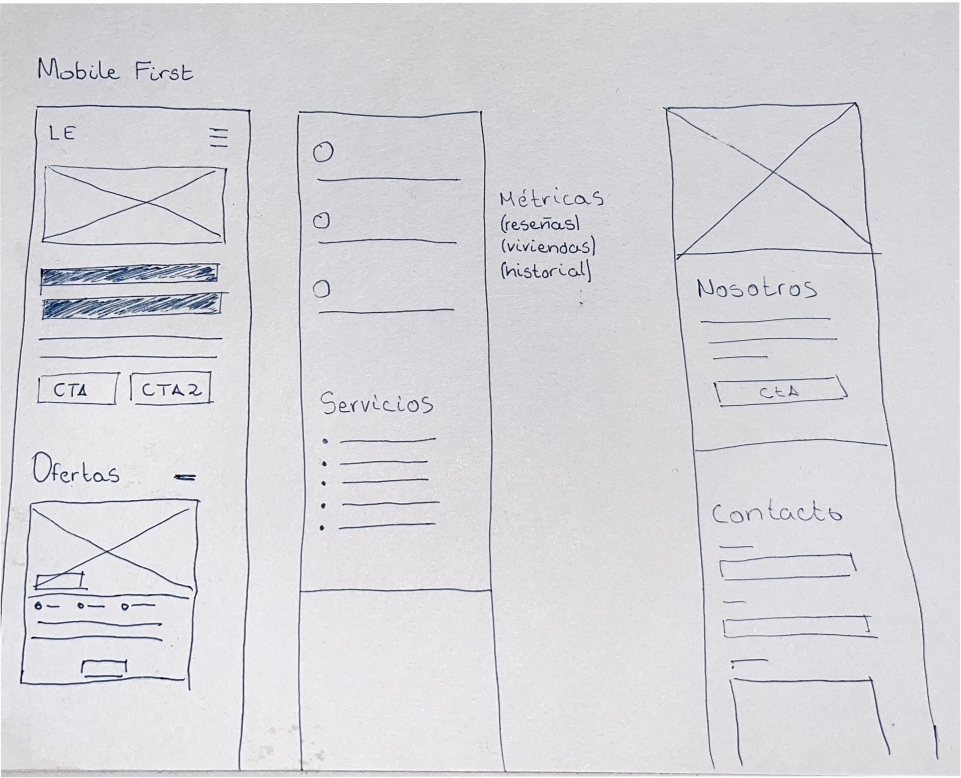 Mobile First
LE
CTA
CTA2
Ofertas
Métricas
(reseñas)
(viviendas)
(historial)
Servicios
Nosotros
CtA
Contacto